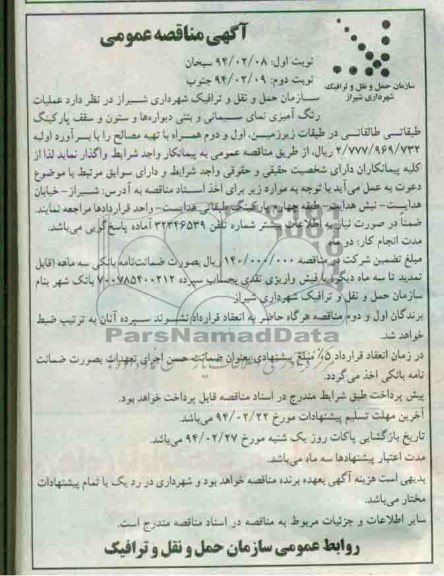 آگهی مناقصه عمومی
سازمان حمل و نقل و ترافیک
شهرداری شیراز
نوبت اول: ۹۴/۰۲/۰۸ سبحان
نوبت دوم: ۹۴/۰۲/۰۹ جنوب
سـازمان حمل و نقل و ترافیک شهرداری شـیراز در نظر دارد عملیات
رنگ آمیزی نمای سـیمانی و بتنی دیوارهها و ستون و سقف پارکینگ
طبقاتـی طالقانـی در طبقات زیرزمیـن، اول و دوم همراه با تهیه مصالح را با بـرآورد اولیه
۲/۷۷۷/۹۶۹/۷۳۲ ریال، از طریق مناقصه عمومی به پیمانکار واجد شرایط واگذار نماید لذا از
کلیه پیمانکاران دارای شخصیت حقیقی و حقوقی واجد شرایط و دارای سوابق مرتبط با موضوع
دعوت به عمل می‌آید با توجه به موارد زیر برای اخذ اسـناد مناقصه به آدرس: شیراز- خیابان
هدایـت- نبش هدایت- طبقه چهارم پارکینگ طبقاتی هدایت- واحد قراردادها مراجعه نمایند.
ضمناً در صورت نیاز به اطلاعات بیشتر شماره تلفن ۳۲۳۴۶۵۳۹ آماده پاسخ گویی می‌باشد.
مدت انجام کار: دو ماه
مبلغ تضمین شرکت در مناقصه ۱۴۰/۰۰۰/۰۰۰ ریال بصورت ضمانت‌نامه بانکی سه ماهه (قابل
تمدید تا سه ماه دیگر) یا فیش واریزی نقدی بحساب سپرده ۷۰۰۷۸۵۴۰۰۲۱۲ بانک شهر بنام
سازمان حمل و نقل و ترافیک شهرداری شیراز
برندگان اول و دوم مناقصه هرگاه حاضر به انعقاد قرارداد نشـوند سـپرده آنان به ترتیب ضبط
خواهد شد.
ParsNamadData
در زمان انعقاد قرارداد ۵٪ مبلغ پیشنهادی بعنوان ضمانت حسن اجرای تعهدات بصورت ضمانت
نامه بانکی اخذ می‌گردد.
پیش پرداخت طبق شرایط مندرج در اسناد مناقصه قابل پرداخت خواهد بود.
آخرین مهلت تسلیم پیشنهادات مورخ ۹۴/۰۲/۲۲ می‌باشد.
تاریخ بازگشایی پاکات روز یک شنبه مورخ ۹۴/۰۲/۲۷ می‌باشد.
مدت اعتبار پیشنهادها سه ماه می‌باشد.
بدیهی است هزینه آگهی بعهده برنده مناقصه خواهد بود و شهرداری در رد یک یا تمام پیشنهادات
مختار می‌باشد.
سایر اطلاعات و جزئیات مربوط به مناقصه در اسناد مناقصه مندرج است.
روابط عمومی سازمان حمل و نقل و ترافیک